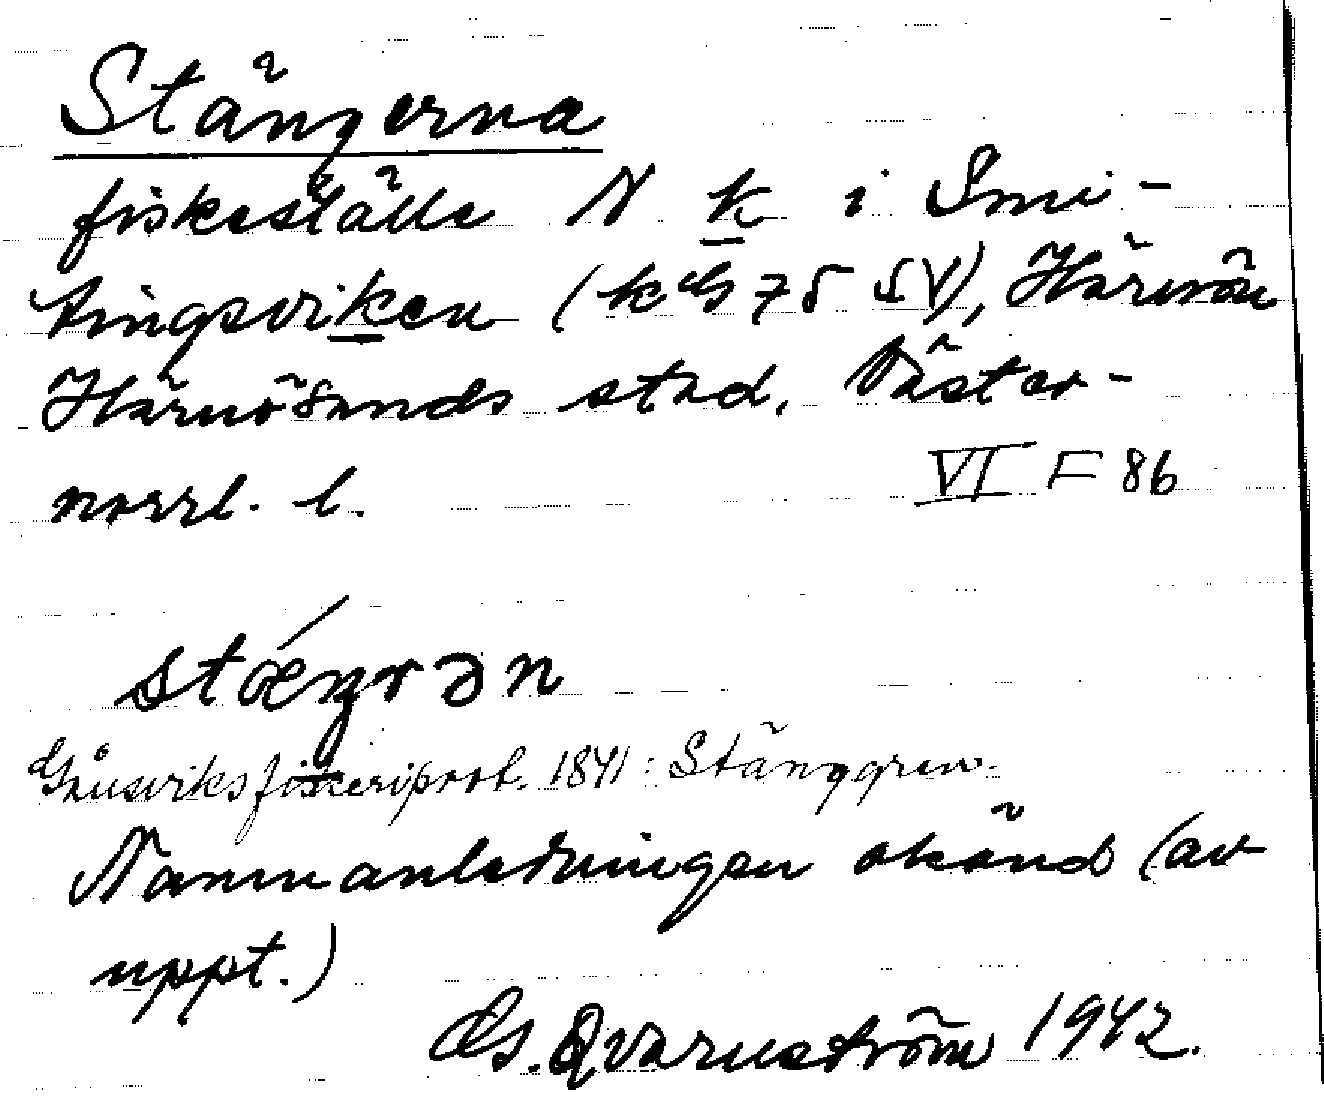 Stängerna
fiskeställe N k i Smi-
tingsviken (kbl 75 SV), Härnön
Härnösands stad, Väster-
norrl. l. VI F 86
stǽŋrən
Gånsviks fiskeriprot. 1841: Stänggren.
Namnanledningen okänd (av
uppt.)
G. Qvarnström 1942.